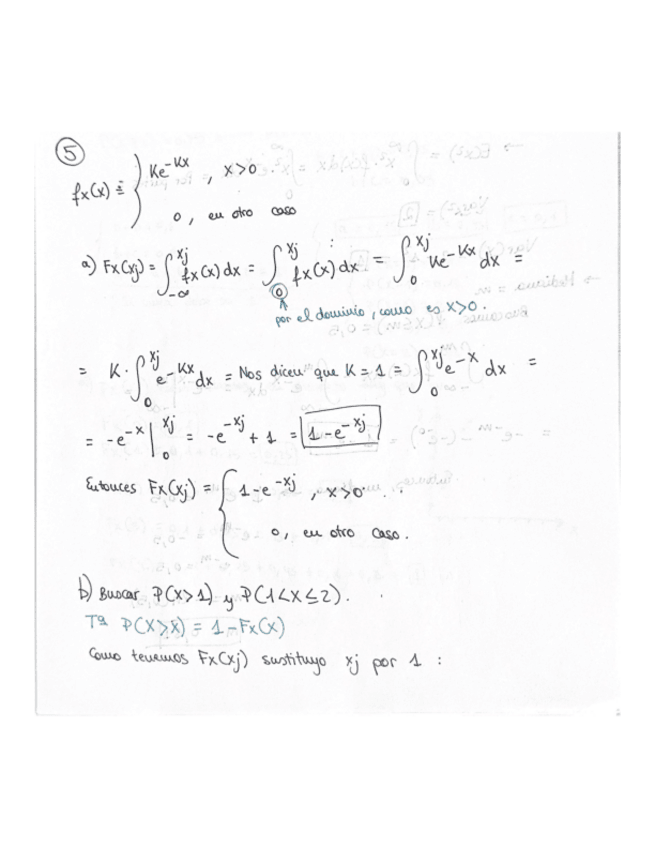 5
fx(x) = { Ke^-Kx , x>0
0, en otro caso
a) Fx(xj) = ∫_-∞^xj fx(x) dx = ∫_0^xj fx(x) dx = ∫_0^xj Ke^-Kx dx =
por el dominio, como es x>0.
= K · ∫_0^xj e^-Kx dx = Nos dicen que K = 1 = ∫_0^xj e^-x dx =
= -e^-x |_0^xj = -e^-xj + 1 = 1-e^-xj
Entonces Fx(xj) = { 1-e^-xj , x>0
0, en otro caso.
b) Buscar P(X>1) y P(1<X≤2).
Tª P(X>x) = 1-Fx(x)
Como tenemos Fx(xj) sustituyo xj por 1 :